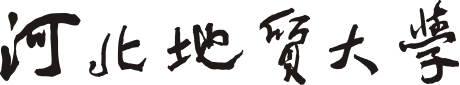 河北地質大學